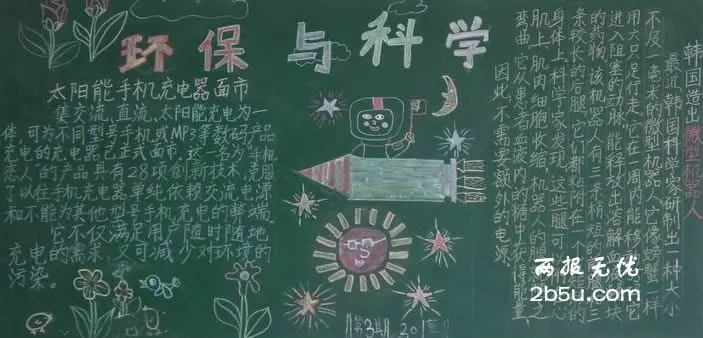 环保与科学
太阳能手机充电器面市
集交流、直流、太阳能充电为一
体,可为不同型号手机或MP3等数码产品
充电的充电器已正式面市。这一名为“手机
恋人”的产品具有28项创新技术,克服
了以往手机充电器单纯依赖交流电源
和不能为其他型号手机充电的弊端。
它不仅满足用户随时随地
充电的需求,又可减少对环境的
污染。
韩国造出微型机器人
最近韩国科学家研制出一种大小
不及一毫米的微型机器人,它像螃蟹一样
用六只足行走,它在一周内能移
进入阻塞的动脉,能释放出溶解血块
的药物。该机器人有三条稍短的前腿和三
条较长的后腿,它们都粘附在一个
身体上。科学家发现,这些腿可
肌上,肌肉细胞收缩,机器人的腿随之
弯曲。它从患者血液内的糖中获得能量,
因此不需要额外的电源。
第3期
两报无忧
2b5u.com